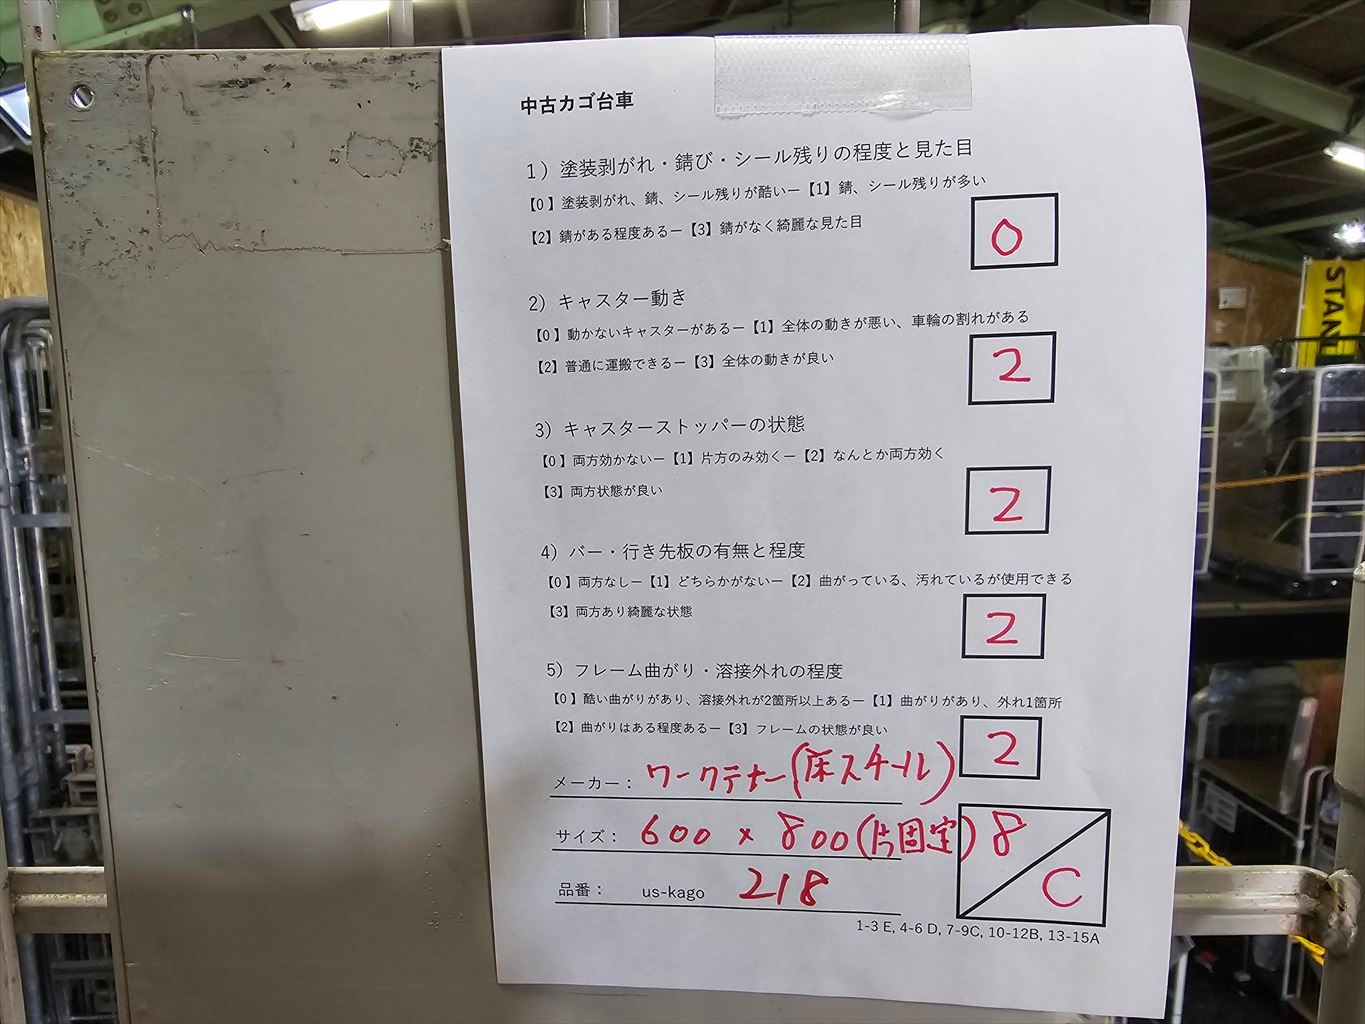 中古カゴ台車
1）塗装剥がれ・錆び・シール残りの程度と見た目
【0】塗装剥がれ、錆、シール残りが酷いー【1】錆、シール残りが多い
【2】錆がある程度あるー【3】錆がなく綺麗な見た目
0
2）キャスター動き
【0】動かないキャスターがあるー【1】全体の動きが悪い、車輪の割れがある
【2】普通に運搬できるー【3】全体の動きが良い
2
3）キャスターストッパーの状態
【0】両方効かないー【1】片方のみ効くー【2】なんとか両方効く
【3】両方状態が良い
2
4）バー・行き先板の有無と程度
【0】両方なしー【1】どちらかがないー【2】曲がっている、汚れているが使用できる
【3】両方あり綺麗な状態
2
5）フレーム曲がり・溶接外れの程度
【0】酷い曲がりがあり、溶接外れが2箇所以上あるー【1】曲がりがあり、外れ1箇所
【2】曲がりはある程度あるー【3】フレームの状態が良い
2
メーカー： ワークテナー(床スチール)
サイズ： 600 × 800 (片固定)
8
C
品番： us-kago 218
1-3 E, 4-6 D, 7-9C, 10-12B, 13-15A
STAN